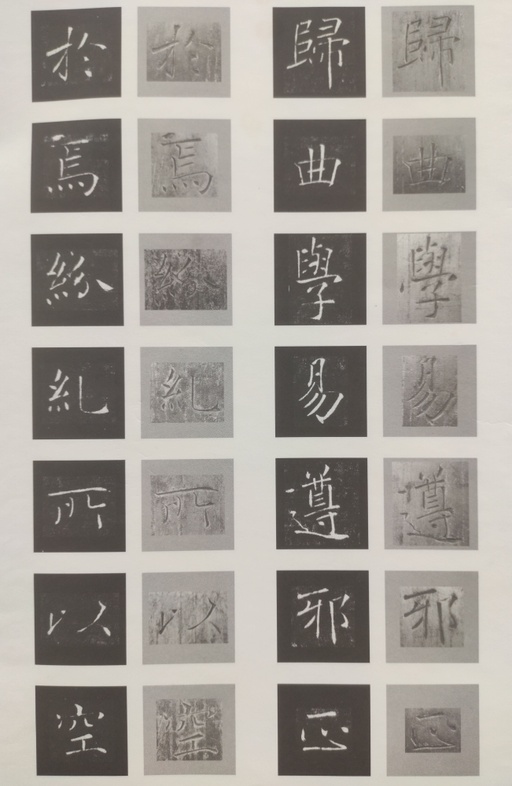 歸曲學易遵邪正
歸曲學易遵邪正
於焉紛糺所以空
於焉紛糺所以空